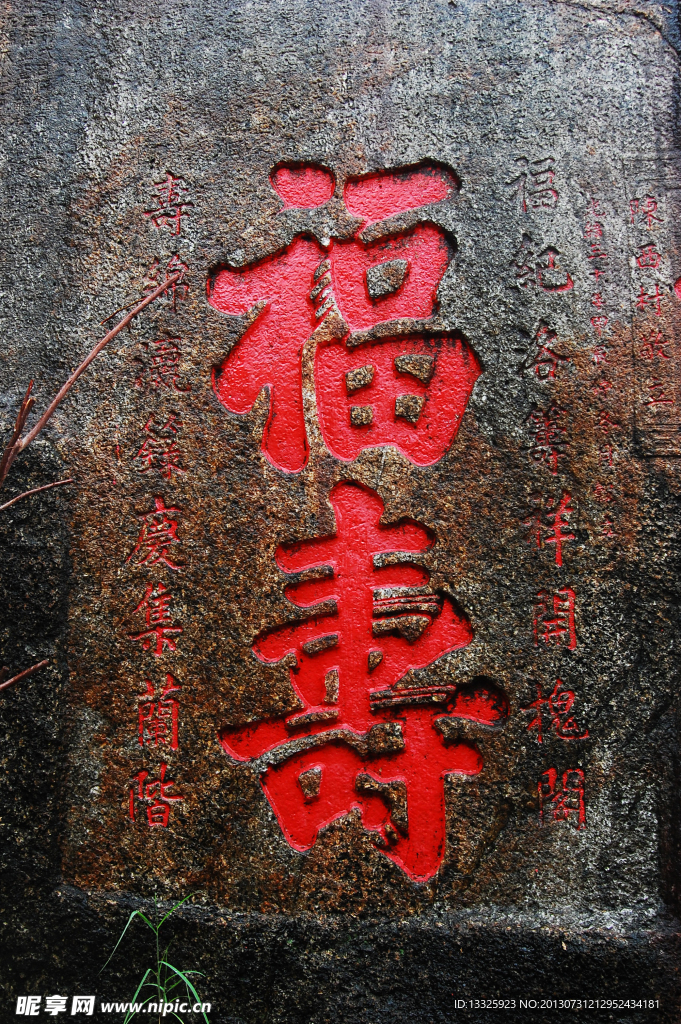 福壽
福紀洛籌祥開槐閣
壽綿瀛籙慶集蘭階
昵享网 www.nipic.cn
ID:13325923 NO:20130731212952434181